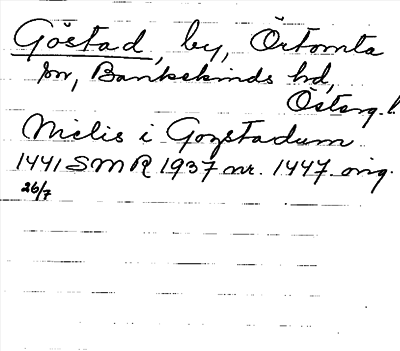 Göstad, by, Örtomta
sn, Bankekinds hd,
Österg. l.
Niclis i Gozstadum
1441 SMR 1937 nr. 1447 orig.
26/7